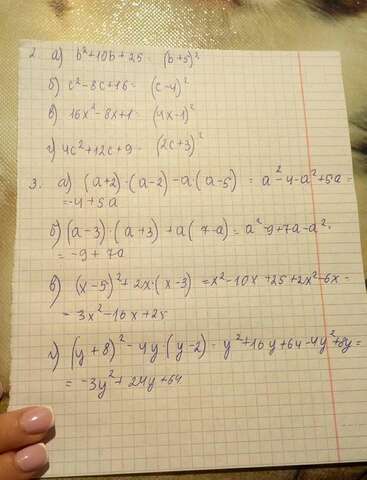 2. а) b²+10b+25 = (b+5)²
б) c²-8c+16 = (c-4)²
в) 16x²-8x+1 = (4x-1)²
г) 4c²+12c+9 = (2c+3)²
3. а) (a+2)·(a-2)-a(a-5) = a²-4-a²+5a =
= -4+5a
б) (a-3)·(a+3)+a(7-a) = a²-9+7a-a² =
= -9+7a
в) (x-5)²+2x·(x-3) = x²-10x+25+2x²-6x =
= 3x²-16x+25
г) (y+8)²-4y·(y-2) = y²+16y+64-4y²+8y =
= -3y²+24y+64